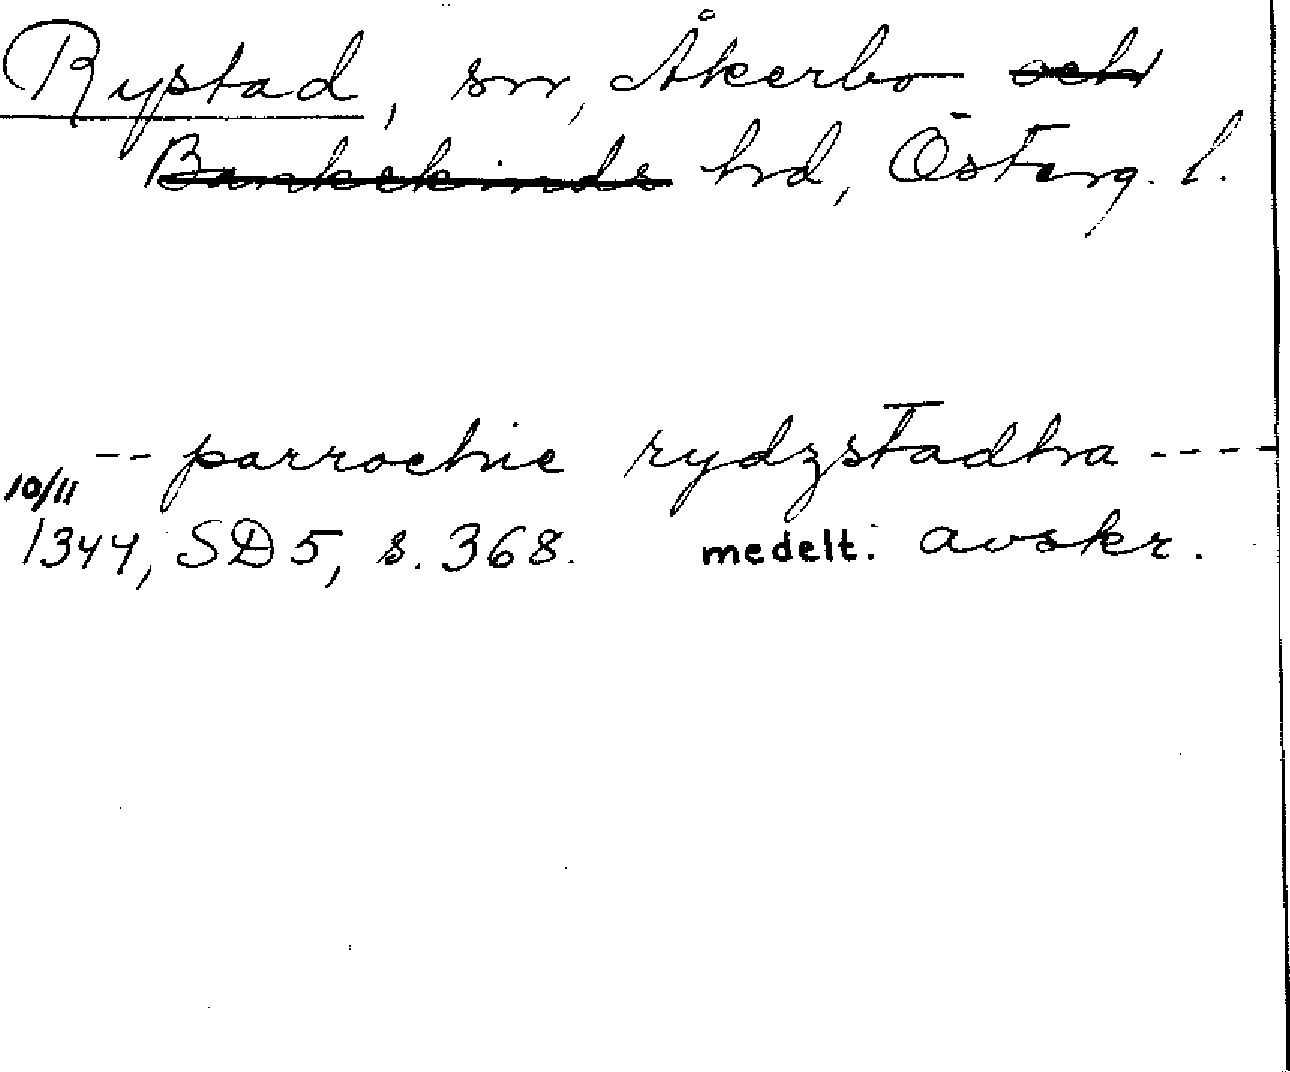 Rystad, sn, Åkerbo och
Bankekinds hd, Österg. l.
-- parrochie rydzstadha ----
10/11
1344, SD 5, s. 368. medelt. avskr.